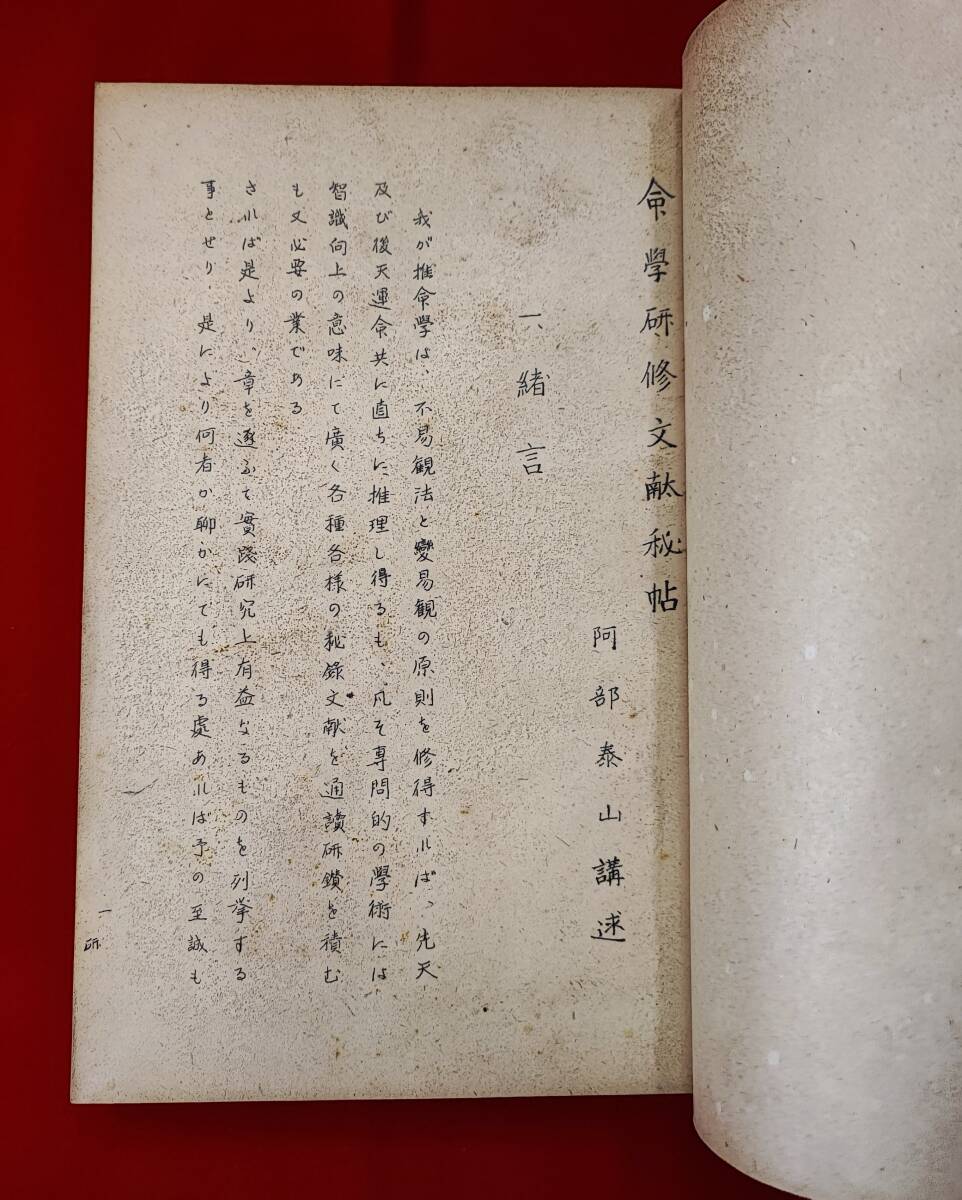 命學研修文献秘帖
阿部泰山講述
一、緒言
我が推命學は、不易観法と變易観の原則を修得すれば、先天
及び後天運命共に直ちに推理し得るも、凡そ専問的の學術には
智識向上の意味にて廣く各種各様の秘録文献を通讀研鑚を積む
も又必要の業である
されば是より、章を逐ふて實践研究上有益なるものを列挙する
事とせり、是により何者か聊かにでも得る處あれば予の至誠も
一
研